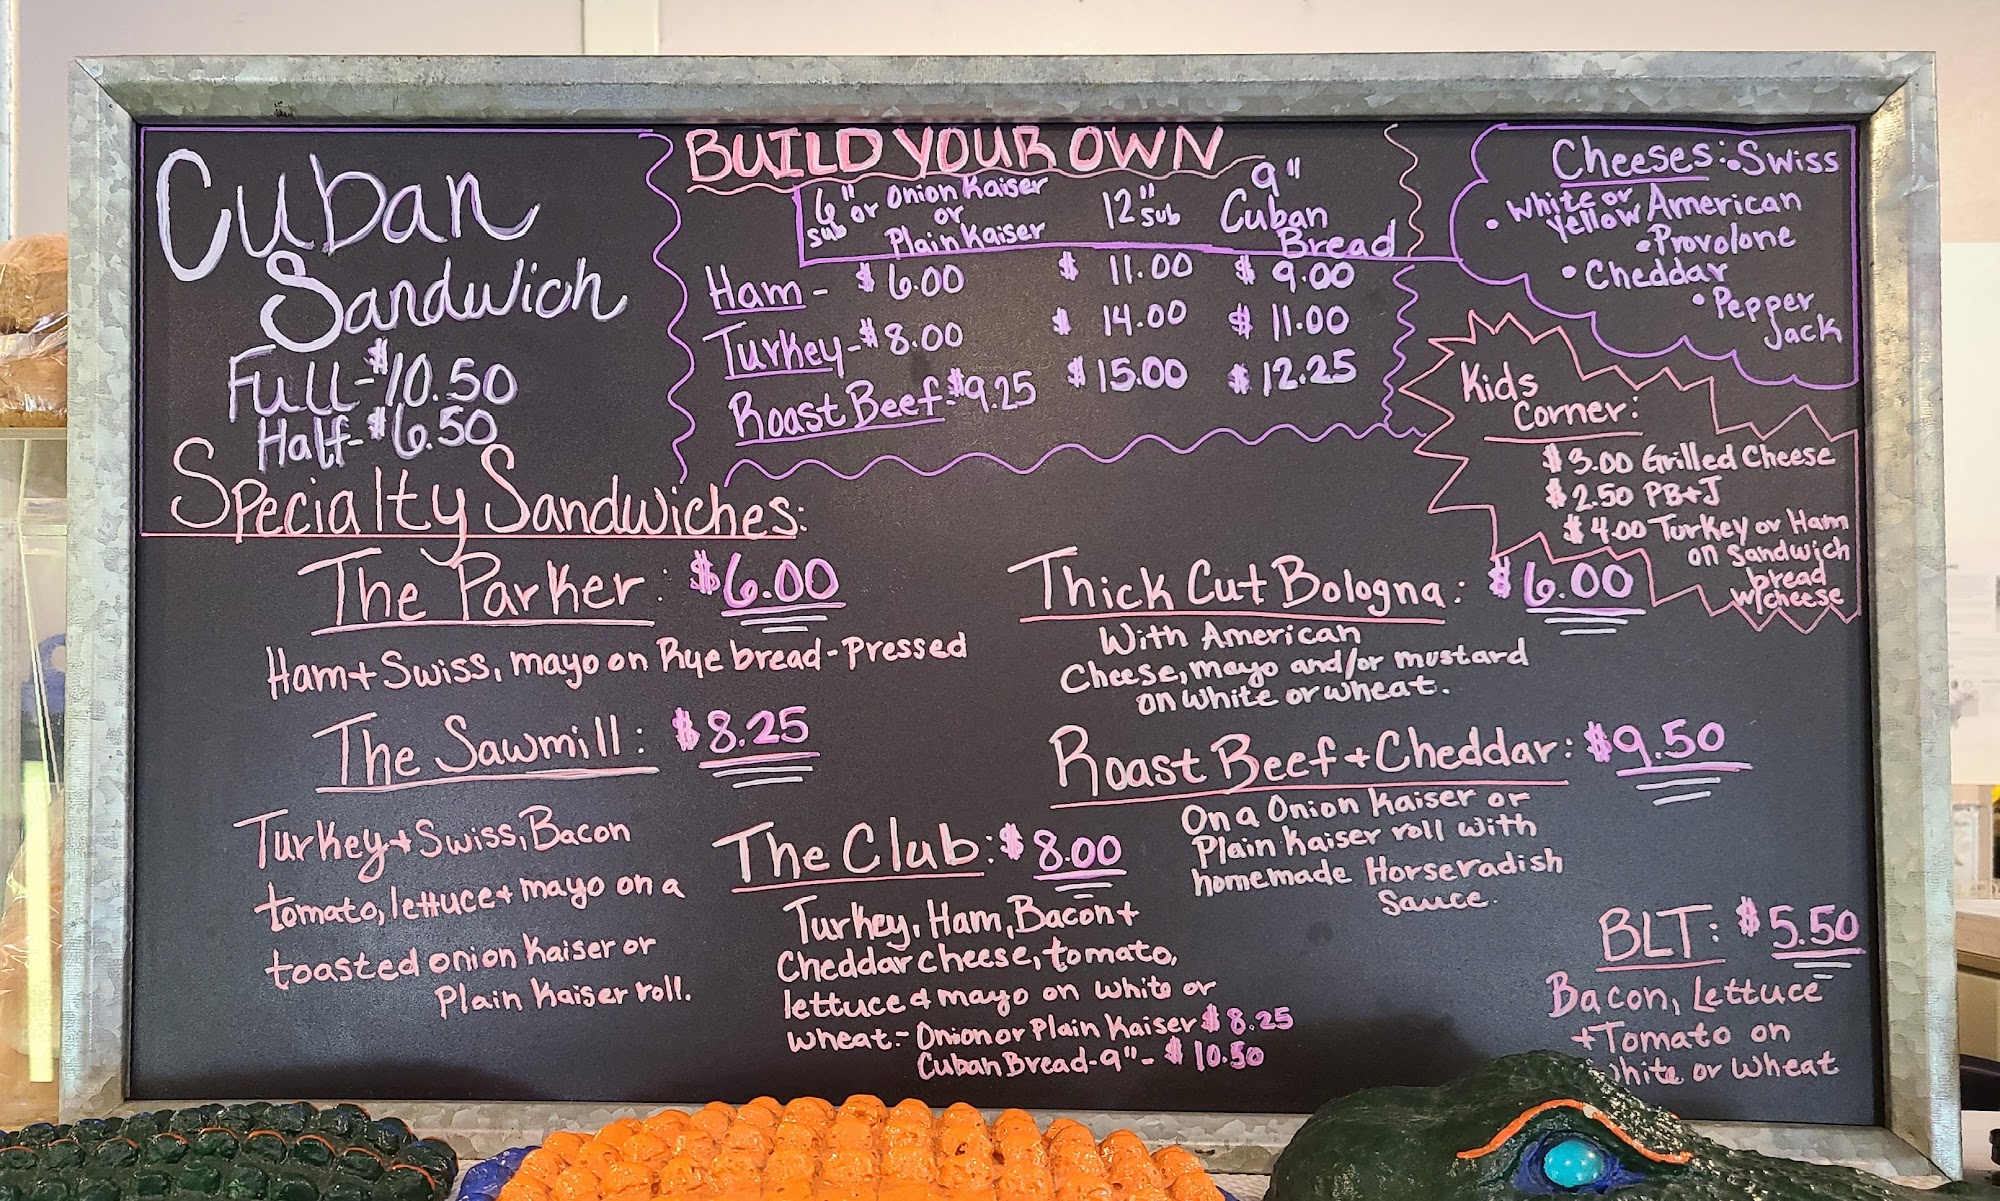 Cuban
Sandwich
Full - $10.50
Half - $6.50
BUILD YOUR OWN
6" sub or Onion Kaiser or Plain Kaiser
12" sub
9" Cuban Bread
Ham - $6.00 $11.00 $9.00
Turkey - $8.00 $14.00 $11.00
Roast Beef - $9.25 $15.00 $12.25
Cheeses: • Swiss
• White or Yellow American
• Provolone
• Cheddar
• Pepper
Jack
Kids
Corner:
$3.00 Grilled Cheese
$2.50 PB+J
$4.00 Turkey or Ham
on Sandwich
bread
w/cheese
Specialty Sandwiches:
The Parker: $6.00
Ham + Swiss, mayo on Rye bread - Pressed
The Sawmill: $8.25
Turkey + Swiss, Bacon
tomato, lettuce + mayo on a
toasted onion Kaiser or
Plain Kaiser roll.
The Club: $8.00
Turkey, Ham, Bacon +
Cheddar cheese, tomato,
lettuce & mayo on white or
wheat. - Onion or Plain Kaiser $8.25
Cuban Bread - 9" - $10.50
Thick Cut Bologna: $6.00
With American
Cheese, mayo and/or mustard
on white or wheat.
Roast Beef + Cheddar: $9.50
On a Onion Kaiser or
Plain Kaiser roll with
homemade Horseradish
Sauce.
BLT: $5.50
Bacon, Lettuce
+ Tomato on
White or Wheat